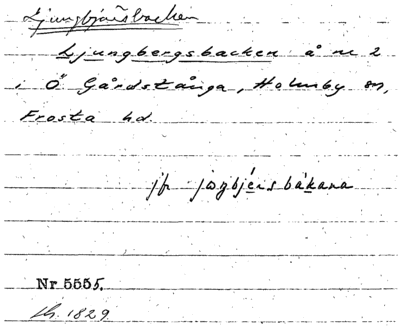 Ljungbjärsbacken
Ljungbergsbacken å nr 2
i Ö Gårdstånga, Holmby sn,
Frosta hd.
jfr
Nr 5555.
1829